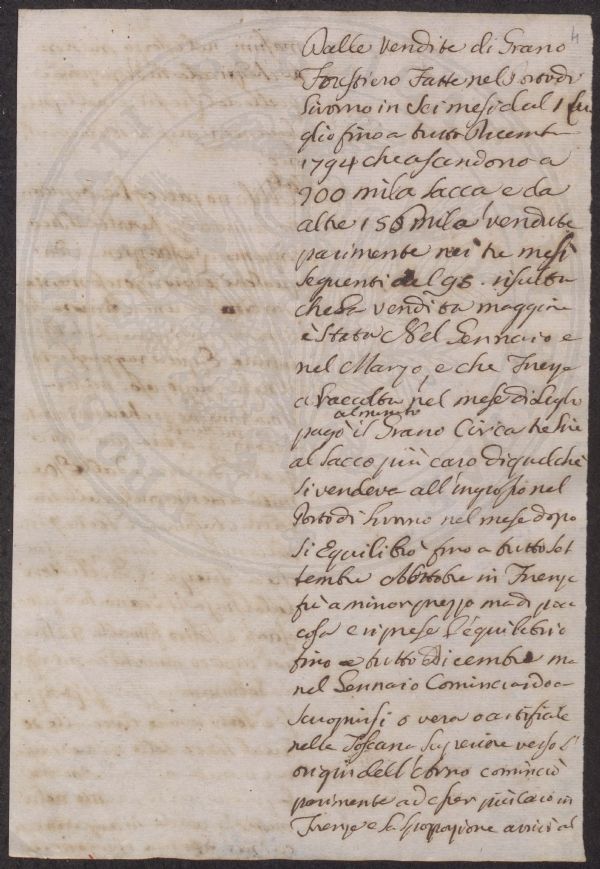 4
Dalle Vendite di Grano
Forestiero Fatte nel Porto di
Livorno in Sei mesi dal 1 Lu
glio fino a tutto Dicemb
1794 che ascendono a
900 mila sacca, e da
altre 156 mila vendute
parimente nei tre mesi
seguenti del 95. risulta
che la vendita maggiore
è Stata Nel Gennaio e
nel Marzo, e che Firenze
a raccolta nel mese di Luglio
pagò al minuto il Grano Circa tre lire
al Sacco più caro di quel che
si vendeva all'ingrosso nel
Porto di Livorno nel mese dopo
si Equilibrò fino a tutto Set
tembre Ottobre in Firenze
fù a minor prezzo ma di poca
cosa e riprese l'equilibrio
fino a tutto Dicembre ma
nel Gennaio Cominciando a
o vera o artifiziale
nella Toscana Superiore verso l'
dell' cominciò
parimente ad esser più caro in
Firenze e la proporzione arrivò al